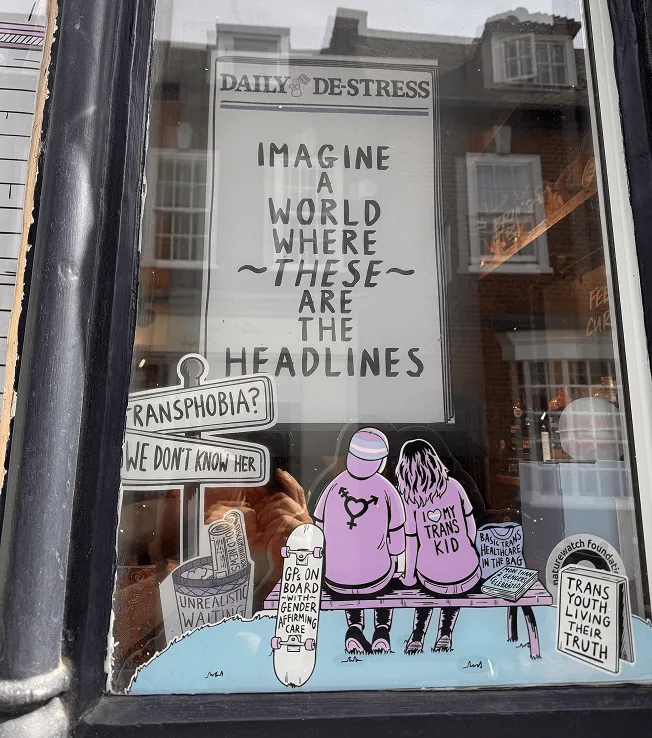 DAILY DE-STRESS
IMAGINE
A
WORLD
WHERE
~THESE~
ARE
THE
HEADLINES
TRANSPHOBIA?
WE DON'T KNOW HER
UNREALISTIC
WAITING
GPs ON
BOARD
~WITH~
GENDER
AFFIRMING
CARE
I MY
TRANS
KID
BASIC TRANS
HEALTHCARE
IN THE BAG
MORE THAN
2 GENDERS
CELEBRATED
naturewatch foundation
TRANS
YOUTH
LIVING
THEIR
TRUTH